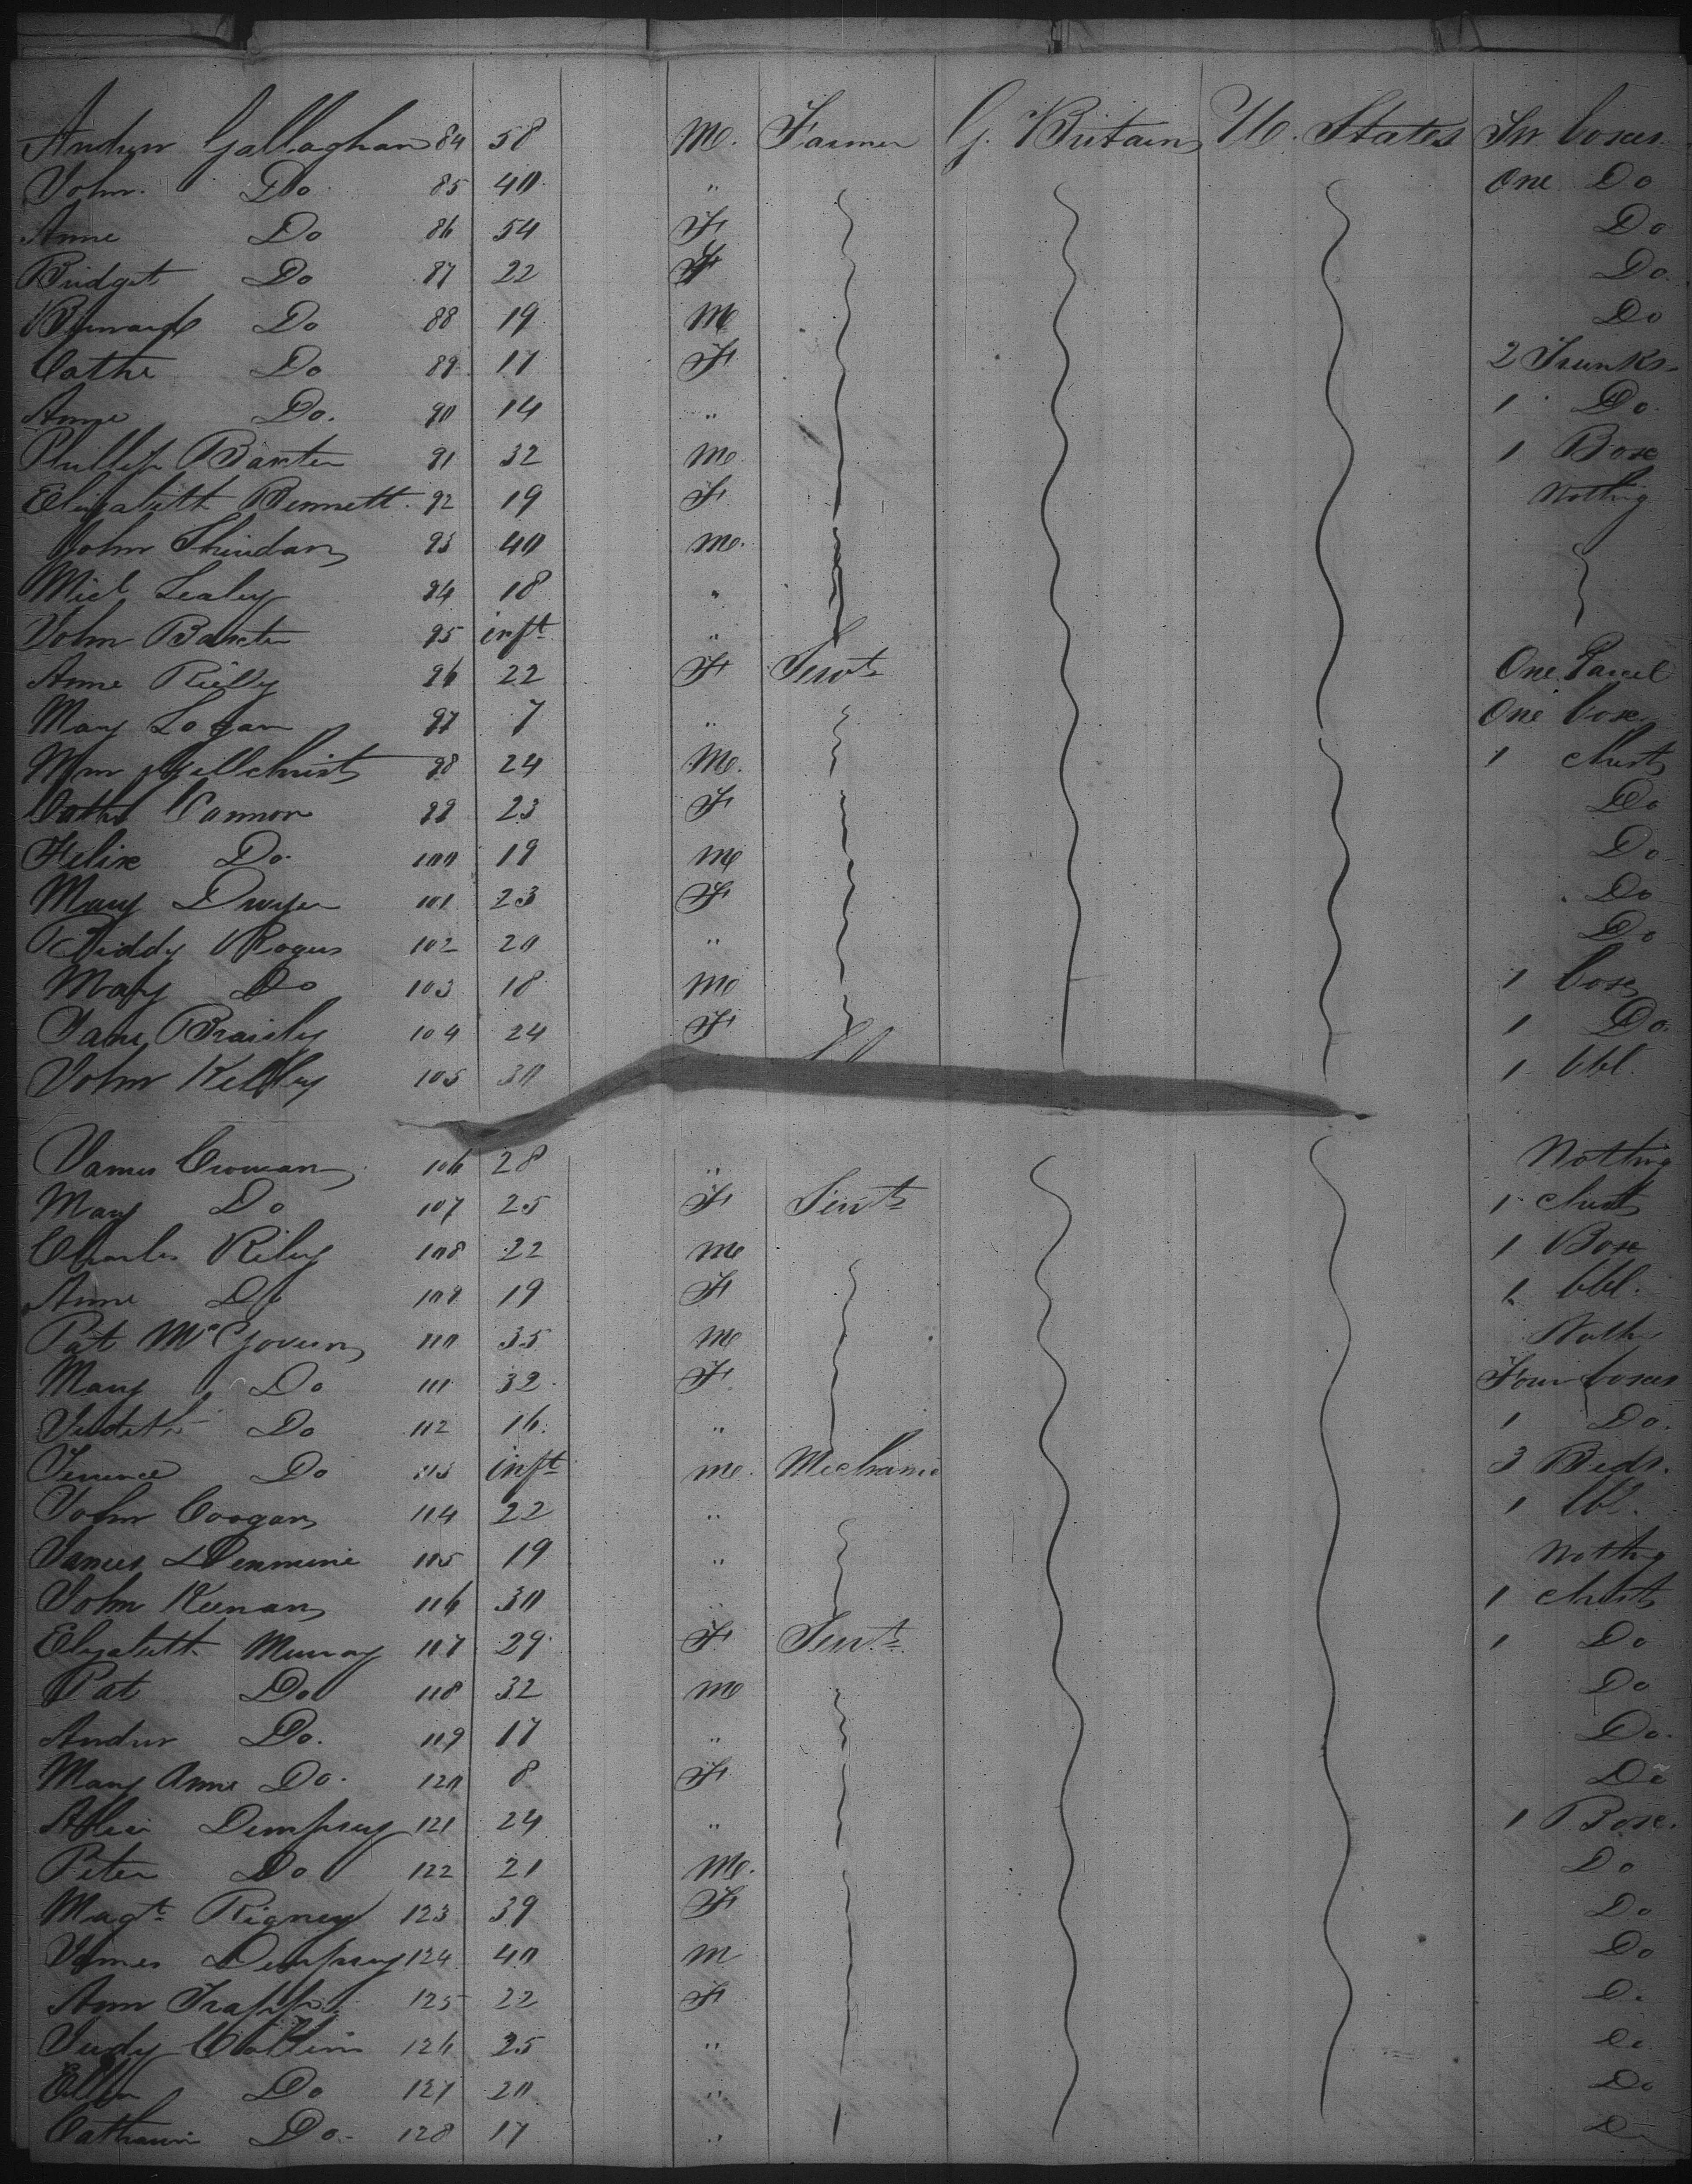 Andrew Gallaghan 84 58 M. Farmer G. Britain U. States boxes
John Do 85 40 " One Do
Anne Do 86 54 F Do
Bridget Do 87 22 F Do
Bernard Do 88 19 M Do
Cathe Do 89 17 F 2 Trunks
Anne Do. 90 14 " 1 Do.
Phillip Baxter 91 32 M 1 Box
Elizabeth Bennett 92 19 F Nothing
John Sheridan 93 40 M.
Micl Lealey 94 18 "
John Baxter 95 inft "
Anne Rielly 96 22 F Servt One Parcel
Mary Logan 97 7 " One box
Wm Gillchrist 98 24 M. 1 chest
Cathe Cannon 99 23 F Do
Felix Do. 100 19 M Do
Mary Dwyer 101 23 F Do
Biddy Rogers 102 20 " Do
Mary Do 103 18 M 1 box
Jane Brady 104 24 F 1 Do.
John Kelley 105 30 1 bbl.
James 106 28 " Nothing
Mary Do 107 25 F Servts 1 chest
Charles Riley 108 22 M 1 Box
Anne Do 109 19 F 1 bbl.
Pat McGovern 110 35 M
Mary Do 111 32 F Four boxes
Judith Do 112 16 " 1 Do.
Terence Do 113 inft M. Mechanic 3 Beds.
John Coogan 114 22 " 1 bbl.
James 115 19 " Nothing
John Keenan 116 30 " 1 chest
Elizabeth Murray 117 29 F Servts 1 Do
Pat Do 118 32 M Do
Andrew Do. 119 17 " Do.
Mary Anne Do. 120 8 F Do
Dempsey 121 24 " 1 Box.
Peter Do 122 21 M. Do
Magt Rigney 123 39 F Do
James Dempsey 124 40 M Do
Ann 125 22 F Do
Judy 126 25 " Do
Ellen Do 127 20 " Do
Catharine Do. 128 17 " Do